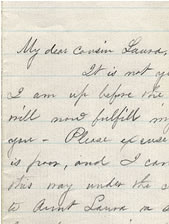 My dear cousin Laura,
It is not ye
I am up before the
will now fulfill my
you - Please excuse
is poor, and I can
this way under the c
to Aunt Laura in a